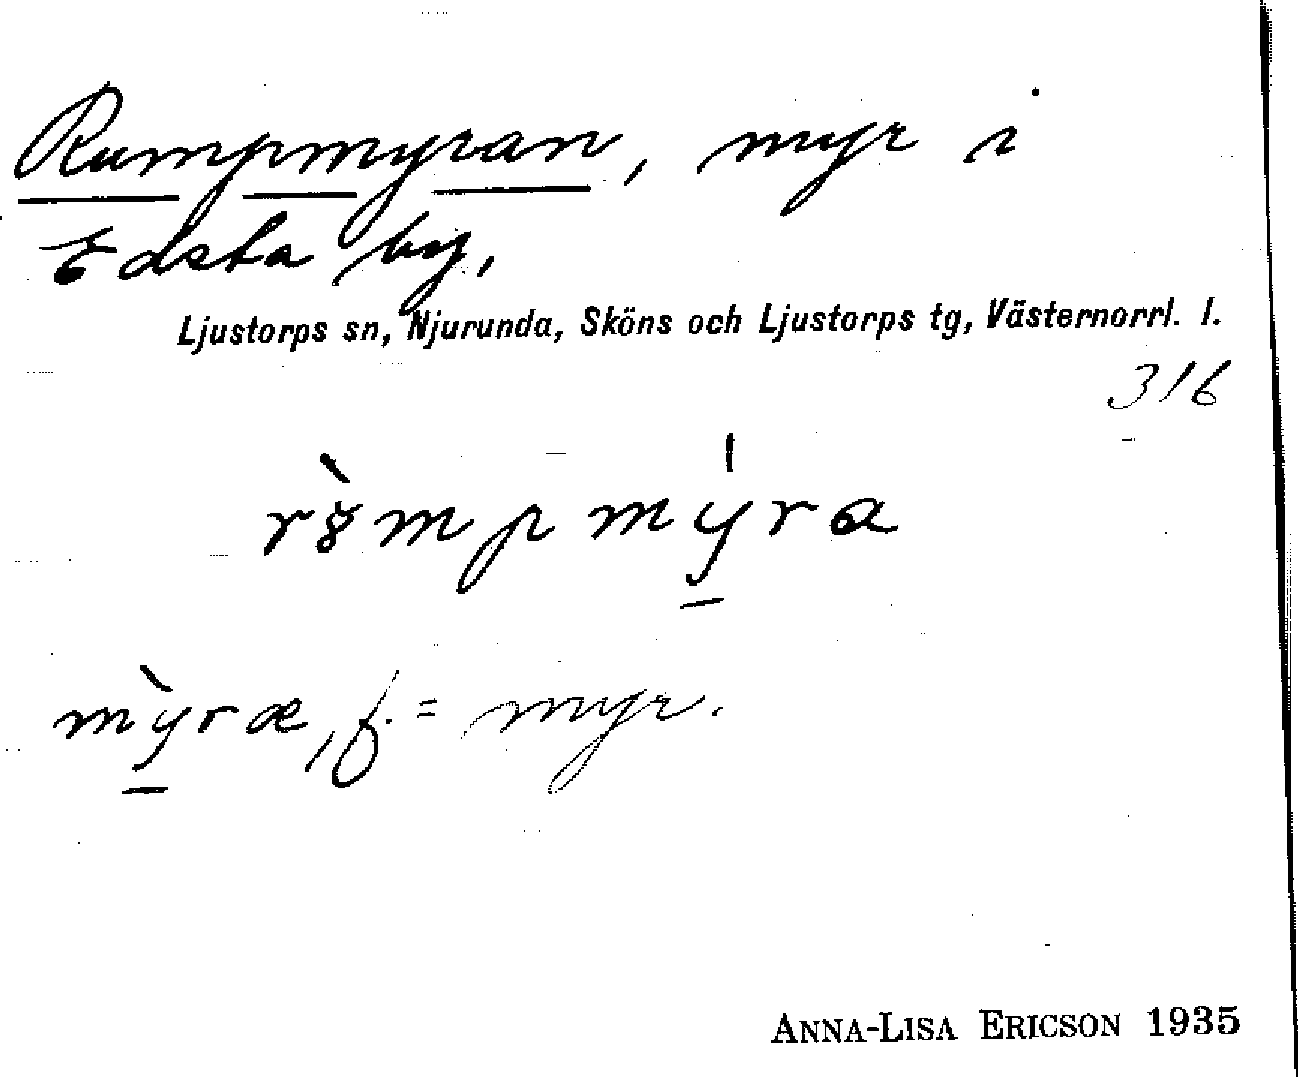 Rumpmyran, myr i
Edsta by,
Ljustorps sn, Njurunda, Sköns och Ljustorps tg, Västernorrl. l.
316
rꞩ̀mpmy̠̍ra
mỳ̠ræ, f. = myr.
ANNA-LISA ERICSON 1935